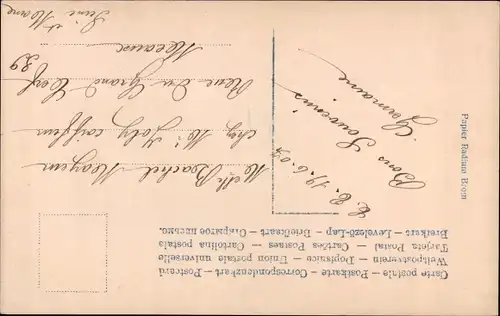 Carte postale — Postkarte — Correspondenzkart — Postcard
Weltpostverein — Dopisnice — Union postale universelle
Tarjeta Postal — Cartões Postaes — Cartolina postale
Brefkort — Levelező-Lap — Briefkaart — Открытое письмо.
Melle Rachel Mayeur
chez Mr Joly coiffeur
Rue du Grand Cerf 29
Meaux
Seine et Marne
19.6.05
Bons Souvenirs
Germaine
Papier Radium Brom